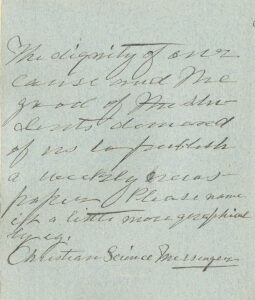 The dignity of our
cause and the
good of the stu
dents demand
of us to publish
a weekly news
paper. Please name
it a little more graphical
by eg.
Christian Science Messenger